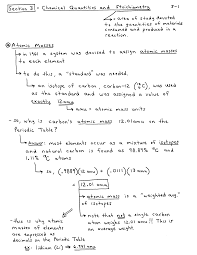 Section 3 - Chemical Quantities and Stoichiometry 3-1
↳ area of study devoted
to the quantities of materials
consumed and produced in a
reaction.
Atomic Masses
→ in 1961 a system was devised to assign atomic masses
to each element
→ to do this, a "standard" was needed.
↳ an isotope of carbon, carbon-12 (¹²C), was used
as the standard and was assigned a value of
exactly 12 amu
↳ amu = atomic mass units
- So, why is carbon's atomic mass 12.01 amu on the
Periodic Table?
↳ Answer: most elements occur as a mixture of isotopes
and natural carbon is found as 98.89% ¹²C and
1.11% ¹³C atoms
↳ So, (.9889)(12 amu) + (.0111)(13 amu)
= 12.01 amu
↳ atomic mass is a "weighted avg."
of isotopes
↳ note that not a single carbon
atom weighs 12.01 amu!! This is
an average weight.
- this is why atomic
masses of elements
are expressed as
decimals on the Periodic Table
ex: Lithium (Li) → 6.941 amu